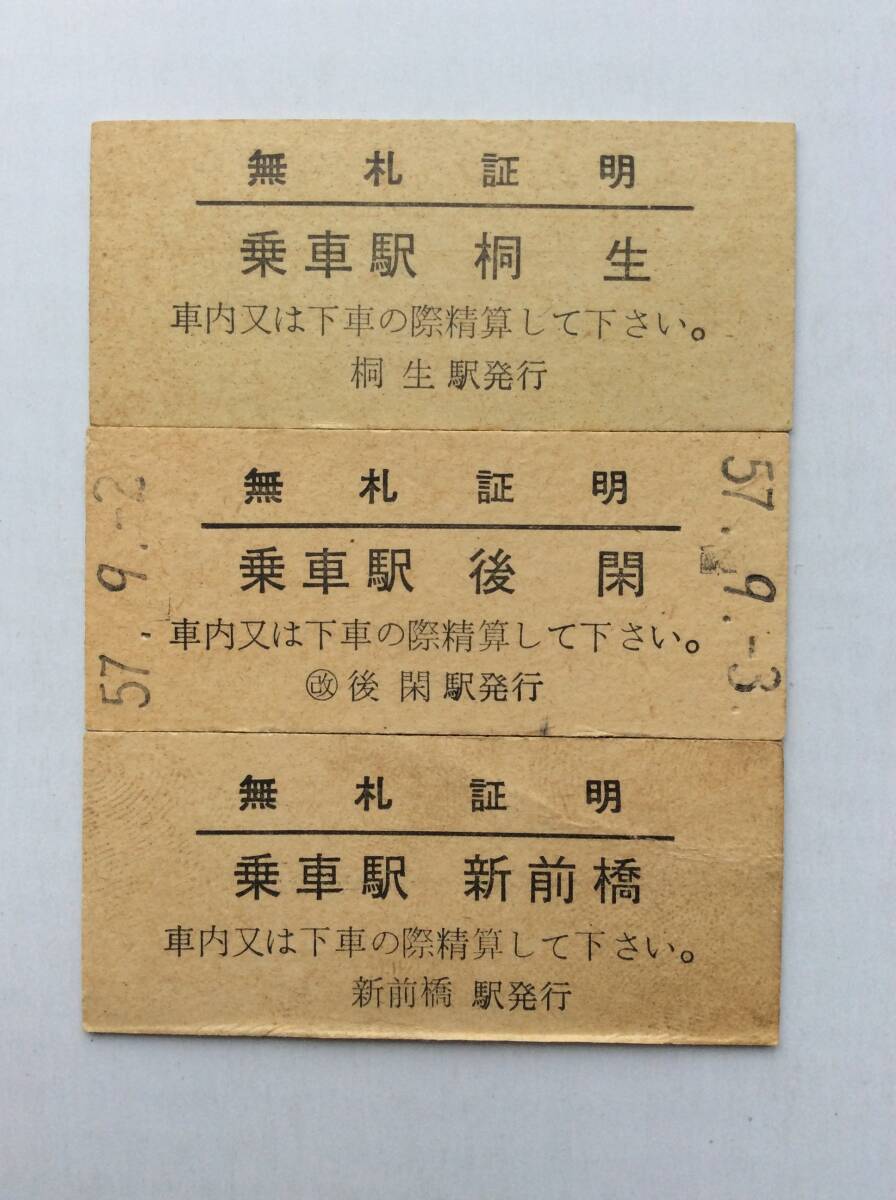 無札証明
乗車駅 桐生
車内又は下車の際精算して下さい。
桐生駅発行
57.9.-2
無札証明
乗車駅 後閑
車内又は下車の際精算して下さい。
㊢後閑駅発行
57.9.-3
無札証明
乗車駅 新前橋
車内又は下車の際精算して下さい。
新前橋 駅発行